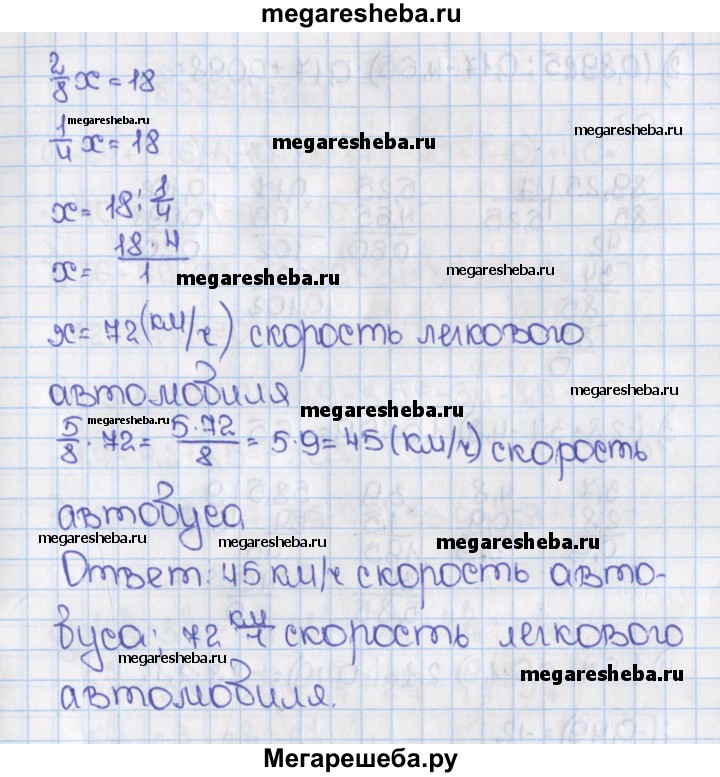 megaresheba.ru
2/8 x = 18
megaresheba.ru
1/4 x = 18
megaresheba.ru
megaresheba.ru
x = 18 : 1/4
x = 18·4/1
megaresheba.ru
megaresheba.ru
x = 72 (км/ч) скорость легкового
автомобиля
megaresheba.ru
megaresheba.ru
megaresheba.ru
5/8 · 72 = 5·72/8 = 5·9 = 45 (км/ч) скорость
автобуса
megaresheba.ru
megaresheba.ru
megaresheba.ru
Ответ: 45 км/ч скорость авто-
буса; 72 км/ч скорость легкового
megaresheba.ru
megaresheba.ru
автомобиля.
Мегарешеба.ру